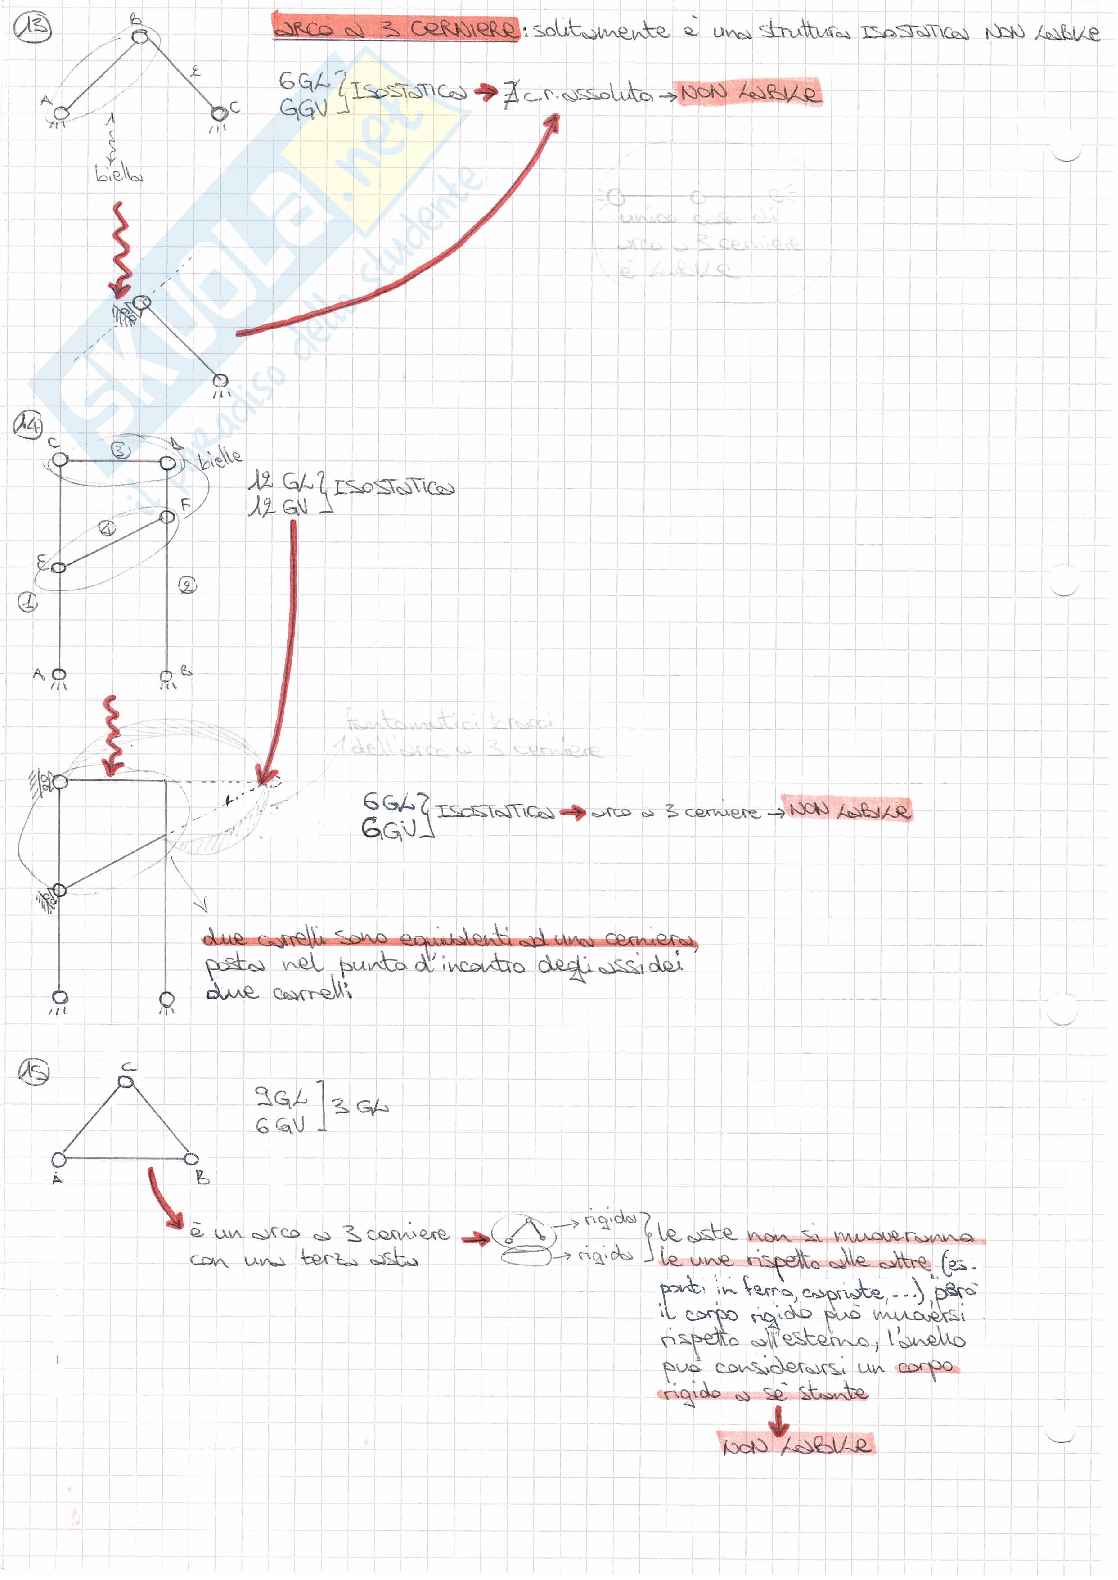 13
ARCO A 3 CERNIERE: solitamente è una struttura ISOSTATICA NON LABILE
B
A
2
C
6GL
6GV
ISOSTATICA → ∄ c.r. assoluto → NON LABILE
biella
unico caso di
arco a 3 cerniere
è LABILE
SKUOLA.net
il paradiso dello studente
14
C
3
D
bielle
12 GL
12 GV
ISOSTATICA
4
F
E
1
2
A
B
dell'arco a 3 cerniere
6GL
6GV
ISOSTATICA → arco a 3 cerniere → NON LABILE
due carrelli sono equivalenti ad una cerniera,
posta nel punto d'incontro degli assi dei
due carrelli
15
C
9GL
6GV
3 GL
A
B
è un arco a 3 cerniere
con una terza asta
→ rigido
→ rigido
le aste non si muoveranno
le une rispetto alle altre (es.
ponti in ferro, capriate, ...), però
il corpo rigido può muoversi
rispetto all'esterno, l'anello
può considerarsi un corpo
rigido a sé stante
NON LABILE